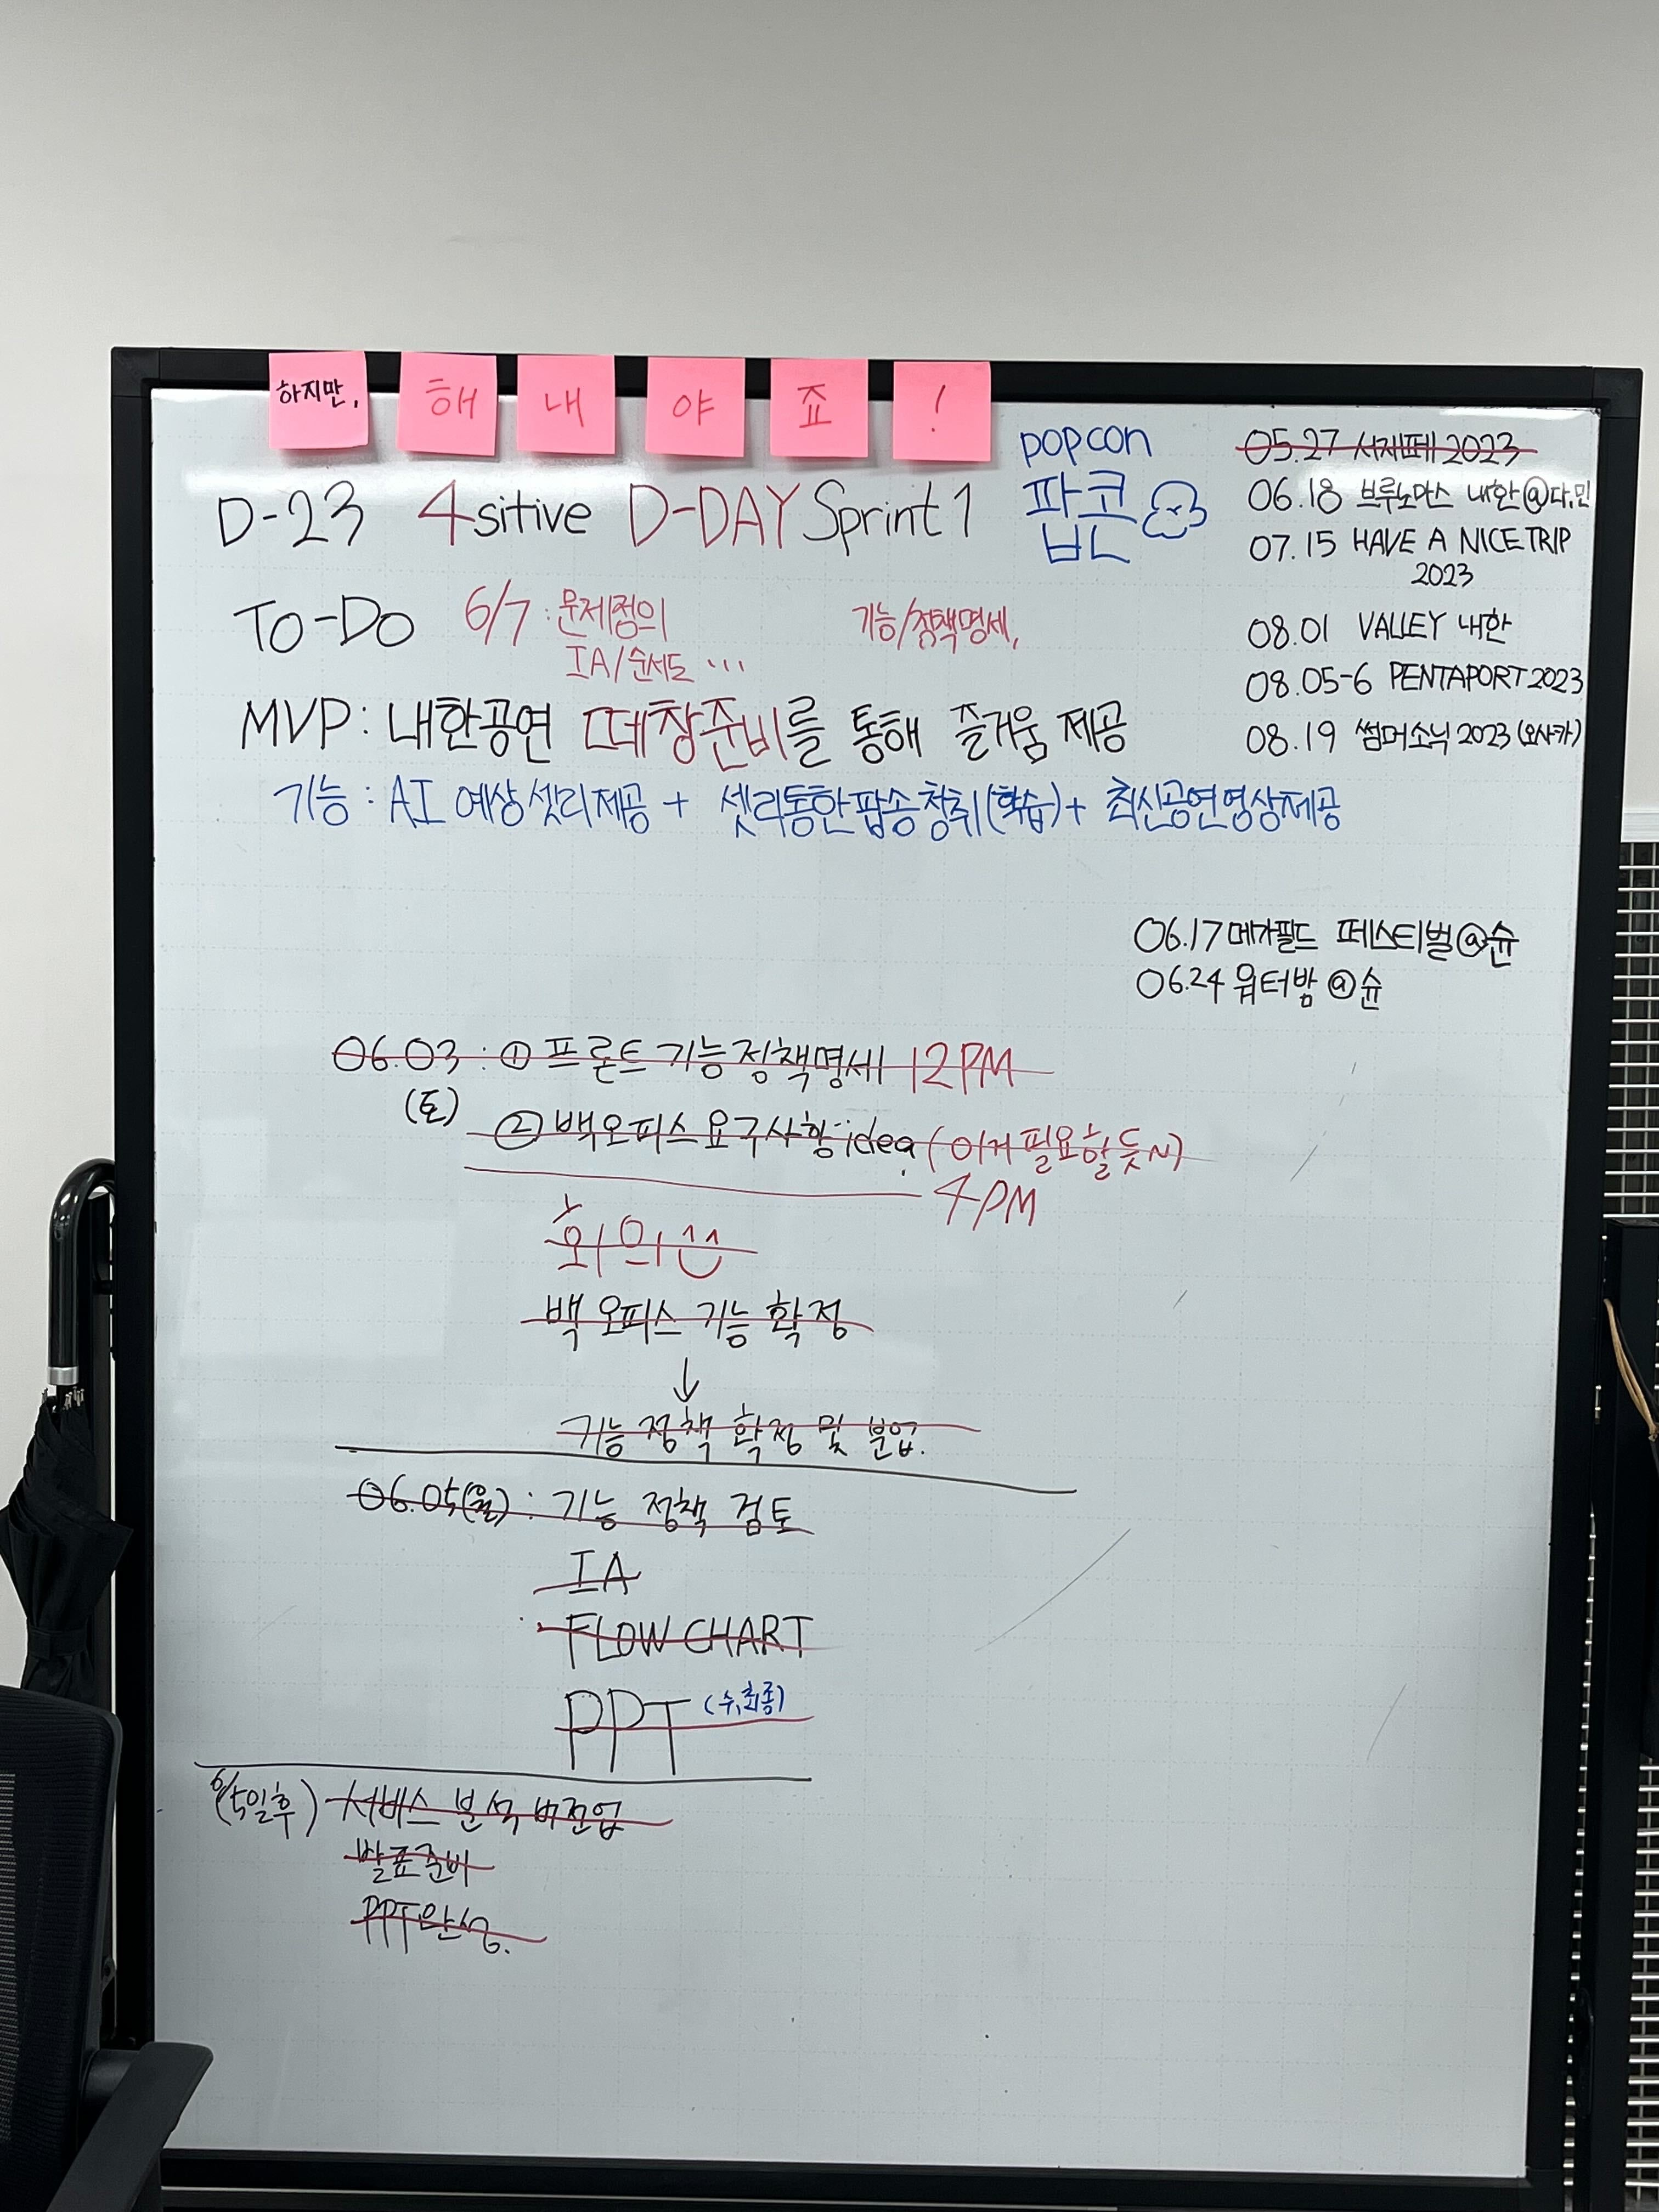 하지만, 해 내 야 죠 !
popcon
팝콘
D-23 4sitive D-DAY Sprint 1
To-Do 6/7 : 문제정의
IA/순서도 ...
기능/정책명세,
MVP : 내한공연 떼창준비를 통해 즐거움 제공
기능 : AI 예상셋리제공 + 셋리통한팝송청취(학습) + 최신공연영상제공
05.27 서재페 2023
06.18 브루노마스 내한@다,민
07.15 HAVE A NICE TRIP
2023
08.01 VALLEY 내한
08.05-6 PENTAPORT 2023
08.19 썸머소닉 2023 (오사카)
06.17 메가필드 페스티벌@슌
06.24 워터밤 @슌
06.03 : ① 프론트 기능정책명세 12PM
(토)
② 백오피스 요구사항 idea (이거 필요할 듯~)
4PM
회의
백오피스 기능 확정
↓
기능 정책 확정 및 분업.
06.05(월) : 기능 정책 검토
IA
FLOW CHART
PPT (수,최종)
(6/5일후) 서비스 분석 버전업
발표준비
PPT완성.